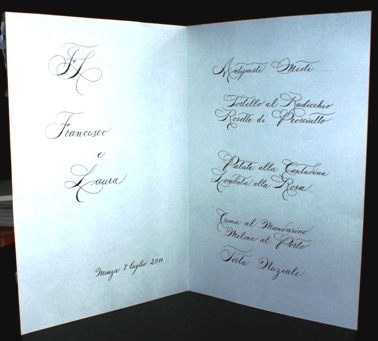 FL
Francesco
e
Laura
Monza 7 luglio 2011
Antipasti Misti
Tortello al Radicchio
Rosette di Prosciutto
Patate alla Contadina
Lombata alla Rosa
Crema al Mandarino
Melone al Porto
Torta Nuziale